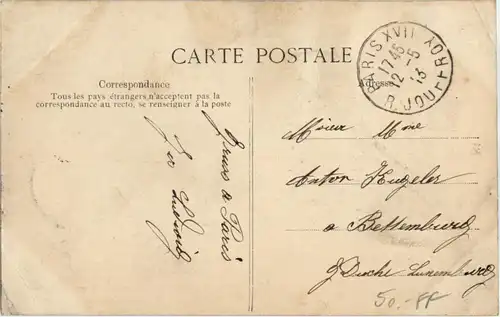 CARTE POSTALE
Correspondance
Tous les pays étrangers, n'acceptent pas la
correspondance au recto, se renseigner à la poste
Adresse
PARIS XVII
17 45
12 - 5
13
R. JOUFFROY
à Paris
Mme
Anton Kugeler
a Bettembourg
Gd Duché Luxembourg
50.- FF